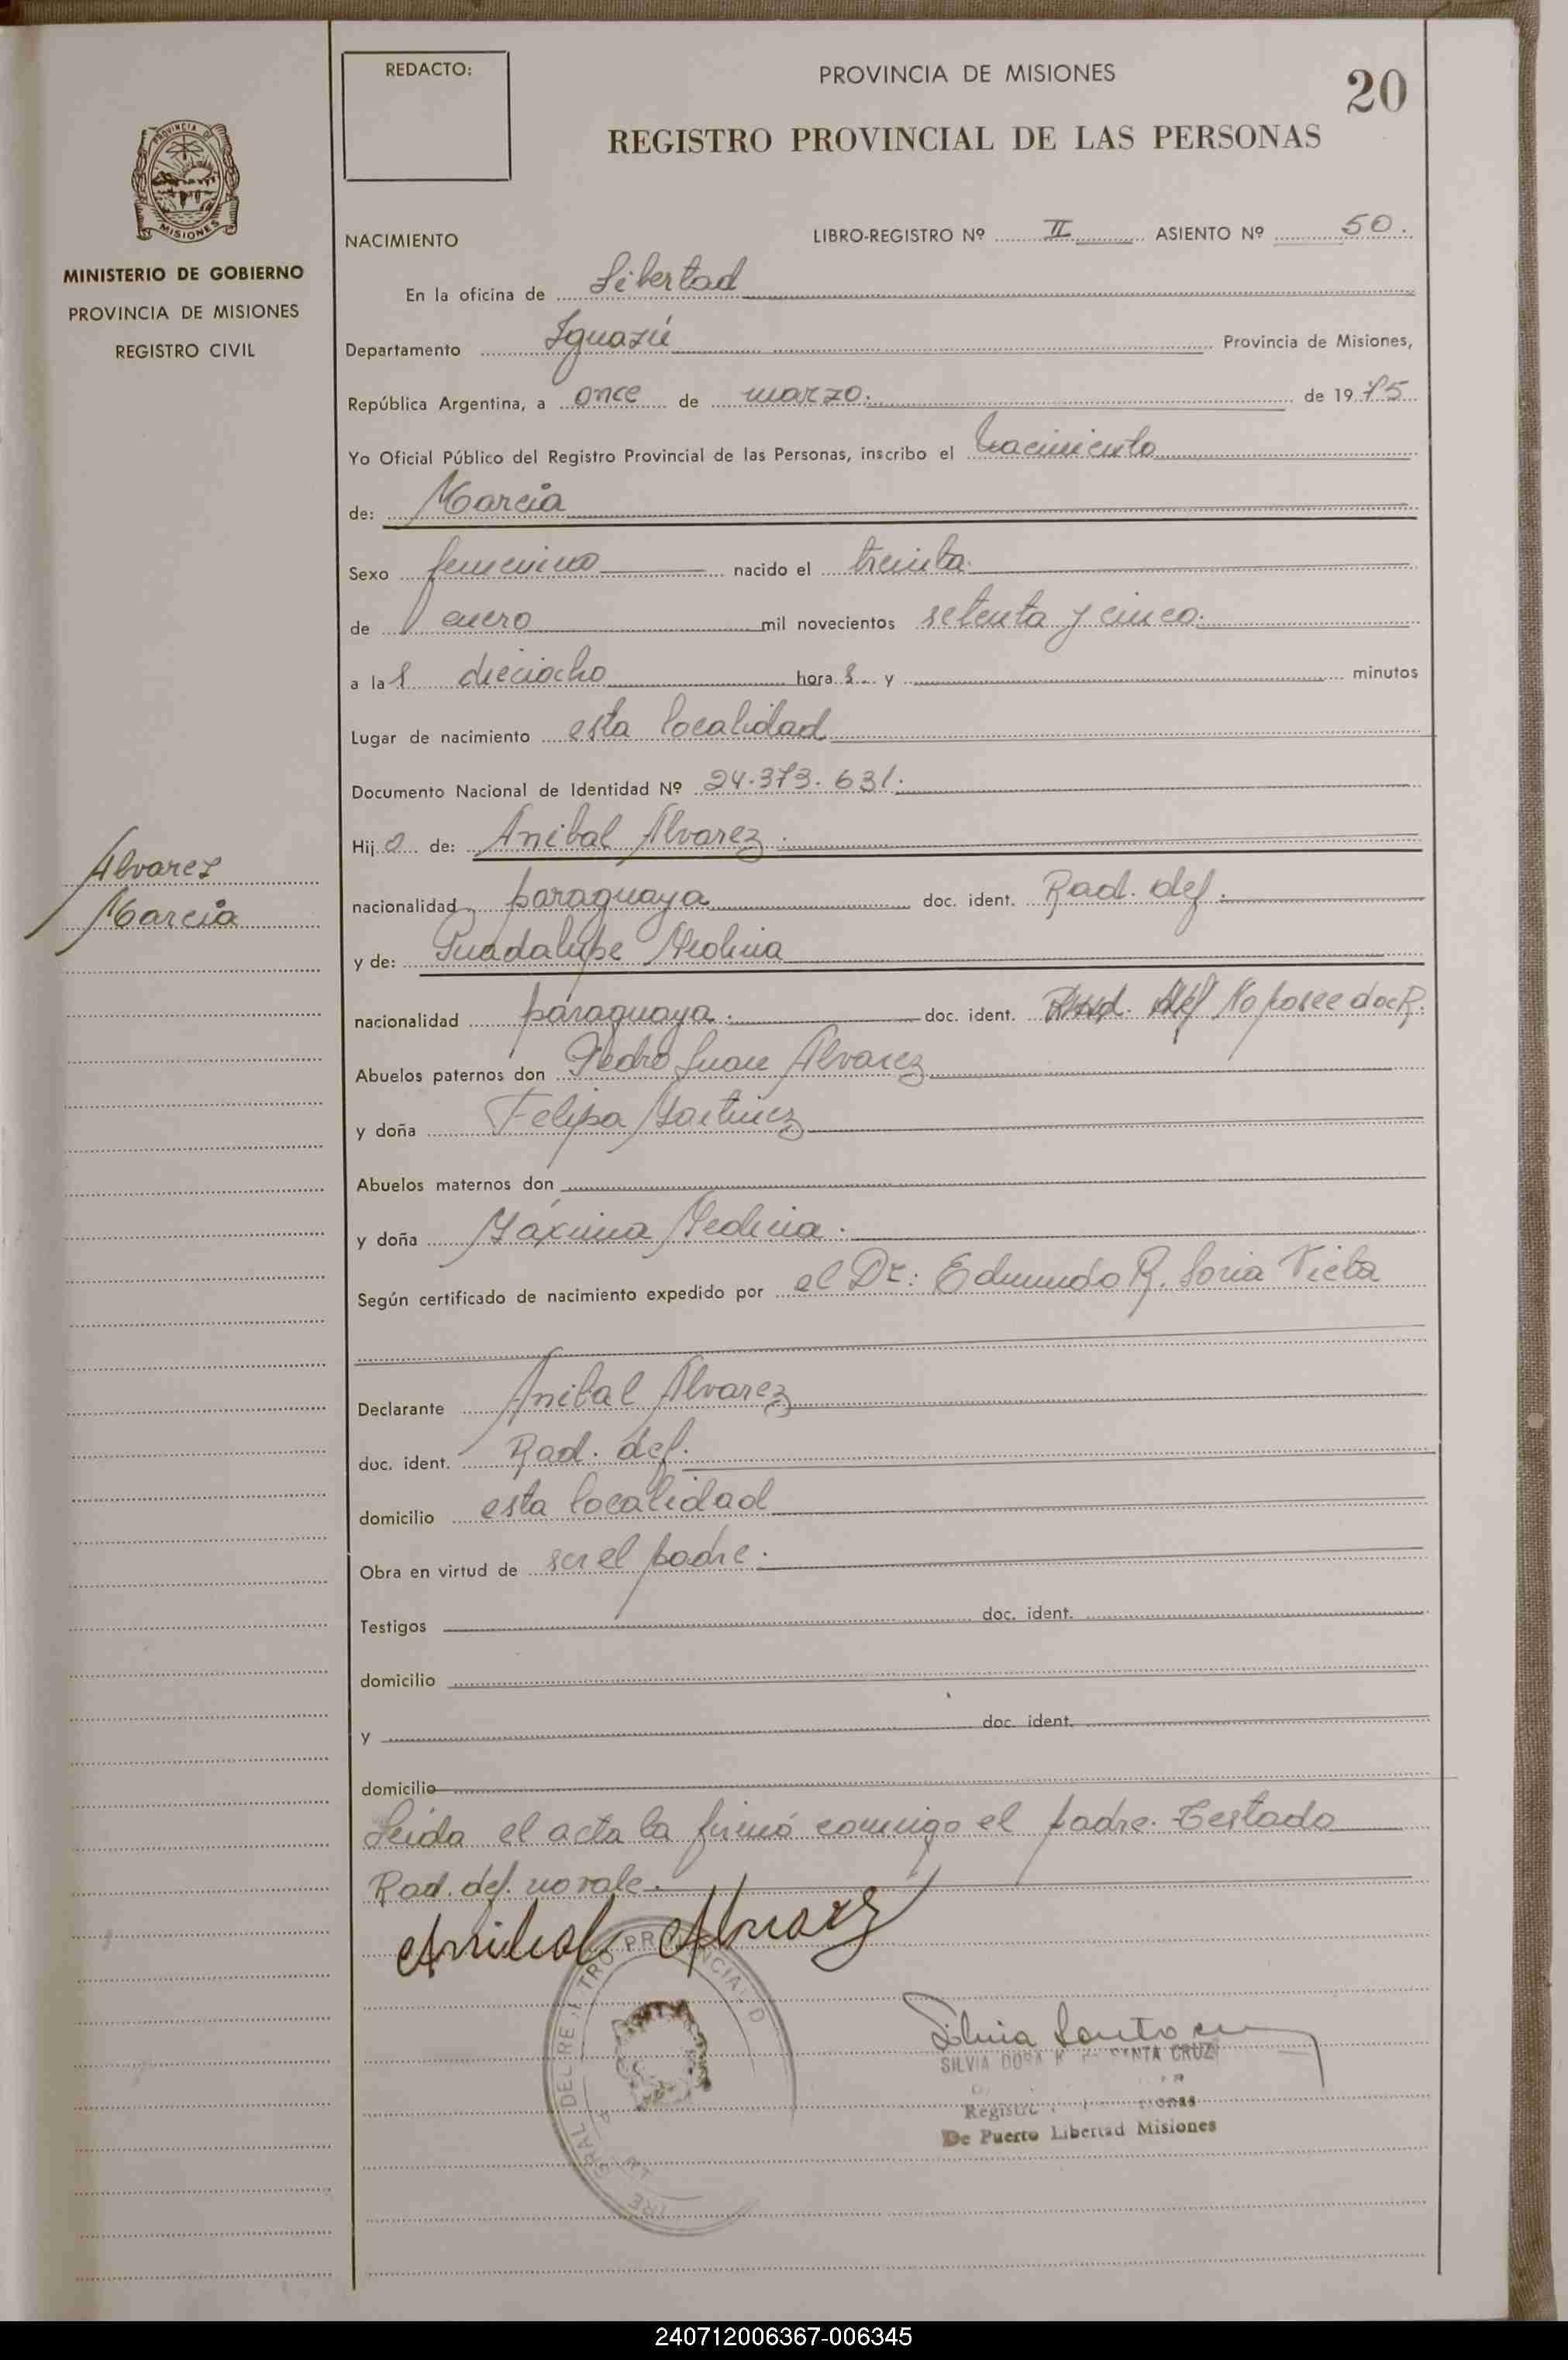 REDACTO:
PROVINCIA DE MISIONES
20
REGISTRO PROVINCIAL DE LAS PERSONAS
PROVINCIA DE
MISIONES
MINISTERIO DE GOBIERNO
PROVINCIA DE MISIONES
REGISTRO CIVIL
NACIMIENTO
LIBRO-REGISTRO Nº II ASIENTO Nº 50.
En la oficina de Libertad
Departamento Iguazú Provincia de Misiones,
República Argentina, a once de marzo. de 1975
Yo Oficial Público del Registro Provincial de las Personas, inscribo el nacimiento
de: Marcia
Sexo femenino nacido el treinta.
de enero mil novecientos setenta y cinco.
a las dieciocho horas y minutos
Lugar de nacimiento esta localidad
Documento Nacional de Identidad Nº 24.373.631.
Hija de: Anibal Alvarez.
Alvarez
Marcia
nacionalidad paraguaya doc. ident. Rad. def.
y de: Guadalupe Molina
nacionalidad paraguaya. doc. ident. Rad. def No posee docR.
Abuelos paternos don Pedro Juan Alvarez
y doña Felipa Martinez
Abuelos maternos don
y doña Máxima
Según certificado de nacimiento expedido por el Dr: Edmundo R. Soria Vieta
Declarante Anibal Alvarez
doc. ident. Rad. def.
domicilio esta localidad
Obra en virtud de ser el padre.
Testigos doc. ident.
domicilio
y doc. ident.
domicilio
Leida el acta la firmó conmigo el padre. Testado
Rad. def. no vale.
Anibal Alvarez
SILVIA DORA SANTA CRUZ
Registro
De Puerto Libertad Misiones
240712006367-006345